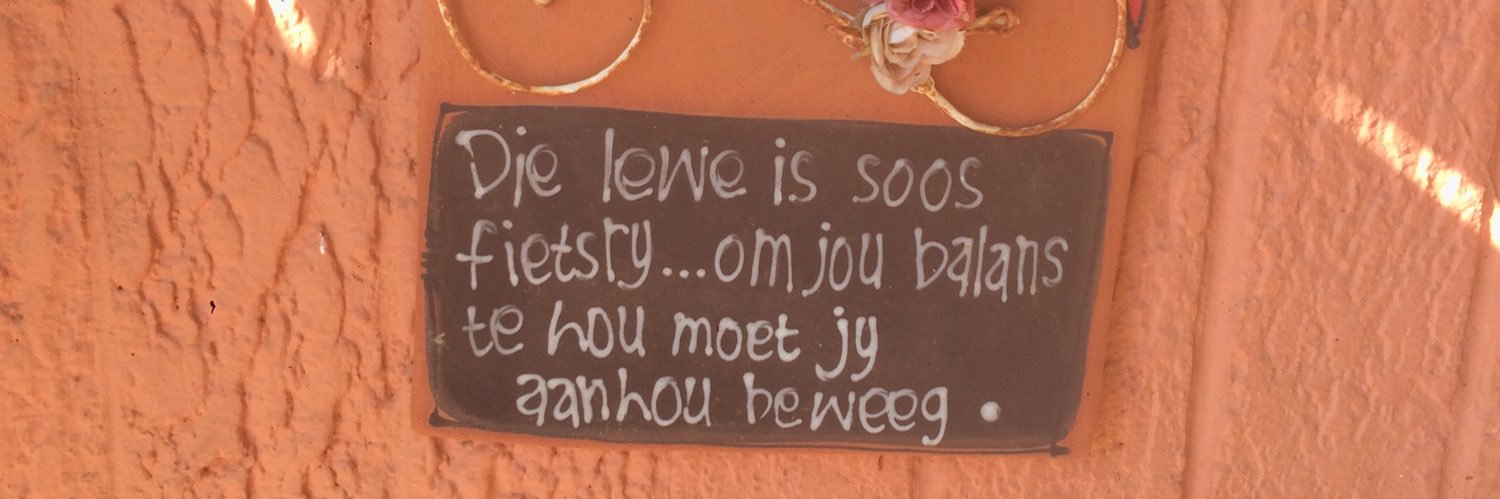 Die lewe is soos
fietsry...om jou balans
te hou moet jy
aanhou beweeg.